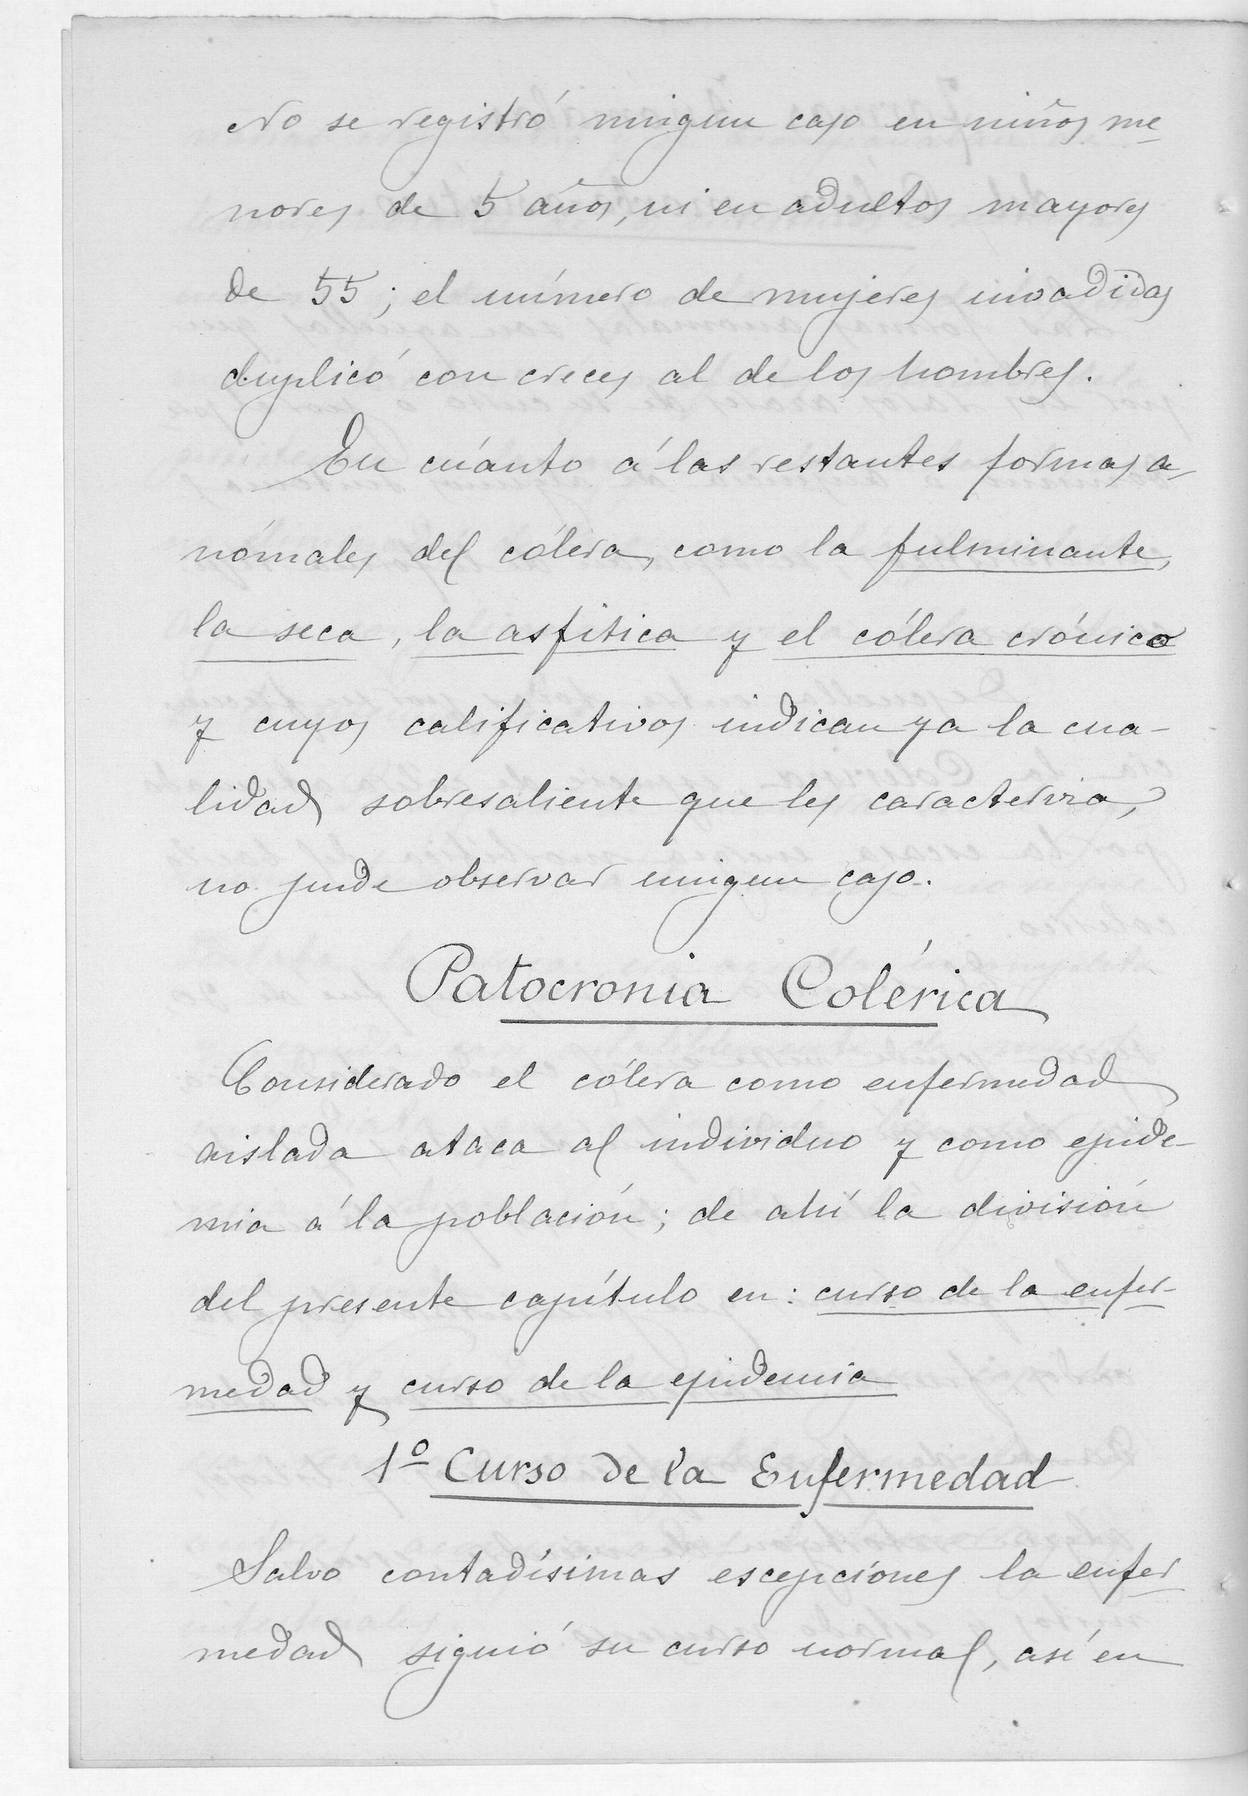 No se registró ningun caso en niños me-
nores de 5 años, ni en adultos mayores
de 55; el número de mujeres invadidas
duplicó con creces al de los hombres.
En cuánto á las restantes formas a-
nómales del cólera, como la fulminante,
la seca, la asfitica y el cólera crónico
y cuyos calificativos indican ya la cua-
lidad sobresaliente que les caracteriza,
no pude observar ningun caso.
Patocronia Colérica
Considerado el cólera como enfermedad
aislada ataca al individuo y como epide-
mia á la población; de ahí la división
del presente capítulo en: curso de la enfer-
medad y curso de la epidemia
1º Curso de la Enfermedad
Salvo contadísimas escepciones la enfer
medad siguió su curso normal, así en